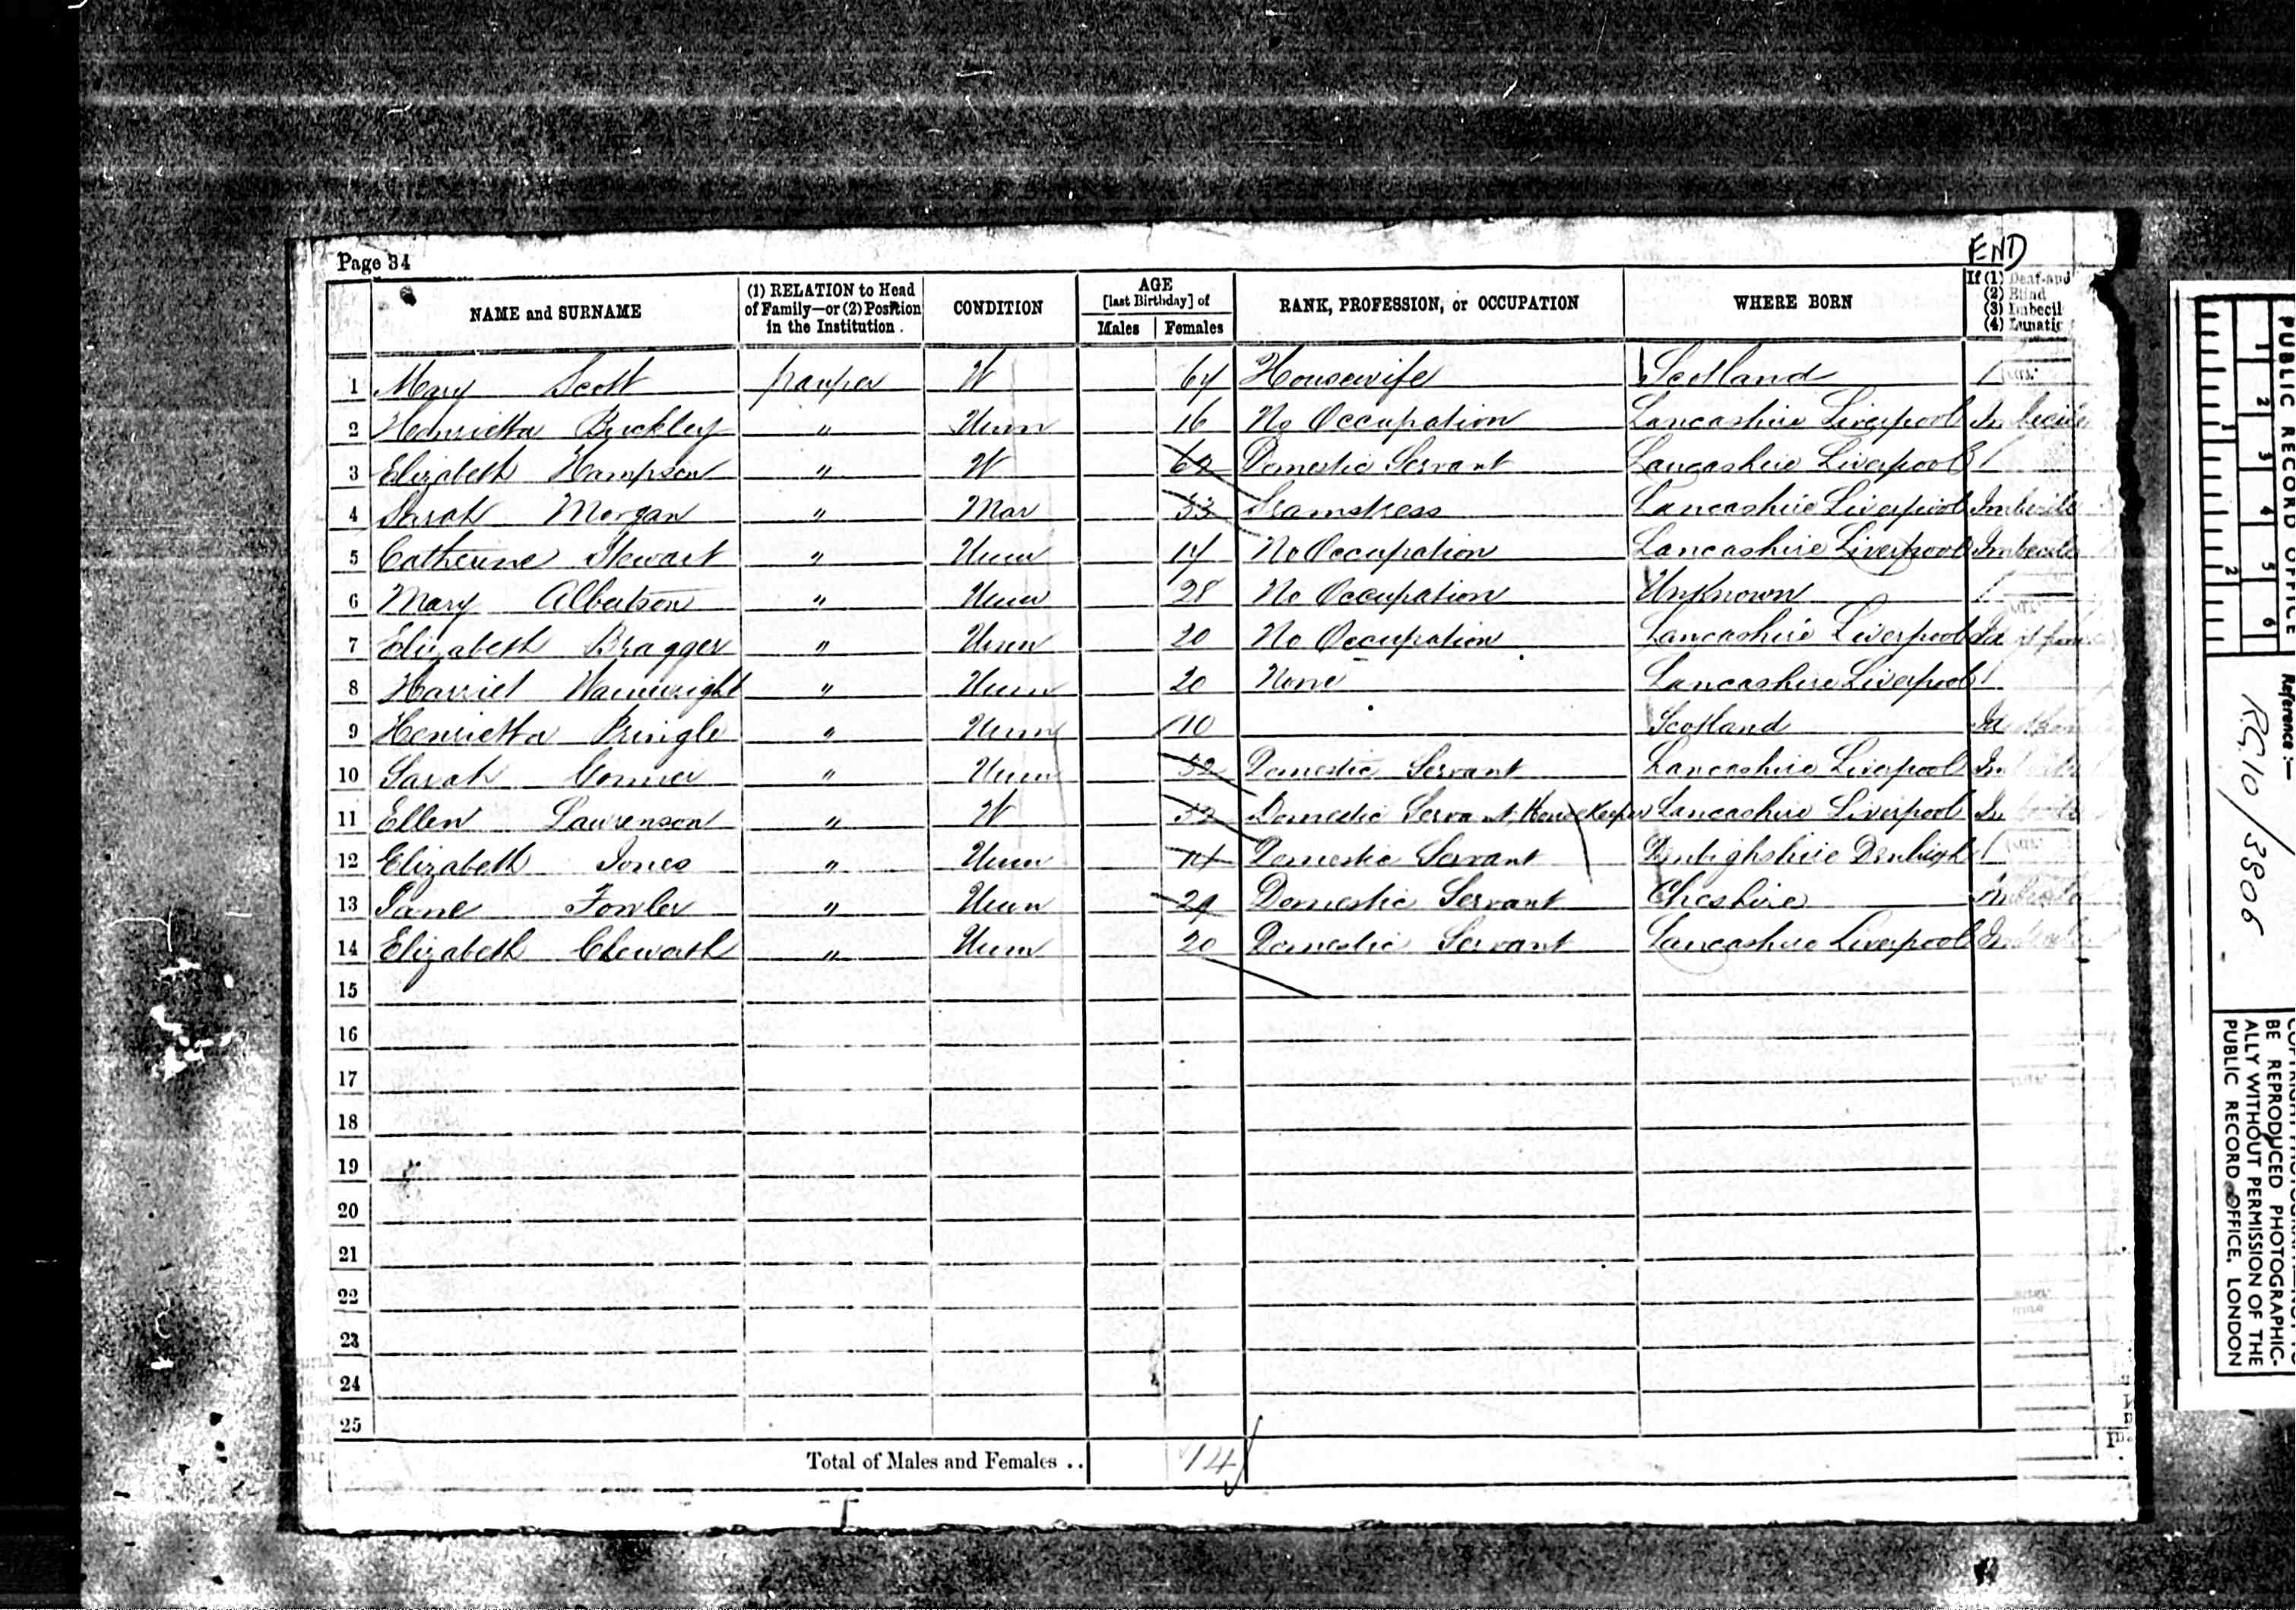 END
Page 34
NAME and SURNAME (1) RELATION to Head of Family—or (2) Position in the Institution. CONDITION AGE [last Birthday] of Males Females RANK, PROFESSION, or OCCUPATION WHERE BORN If (1) Deaf-and (2) Blind (3) Imbecil (4) Lunatic
1 Mary Scott pauper W 64 Housewife Scotland /
2 Henrietta Buckley " Unm 16 No Occupation Lancashire Liverpool Imbecile
3 Elizabeth Hampson " W 62 Domestic Servant Lancashire Liverpool /
4 Sarah Morgan " Mar 33 Seamstress Lancashire Liverpool Imbecile
5 Catherine Stewart " Unm 14 No Occupation Lancashire Liverpool Imbecile
6 Mary Albertson " Unm 28 No Occupation Unknown /
7 Elizabeth Bragger " Unm 20 No Occupation Lancashire Liverpool
8 Harriet Wainwright " Unm 20 None Lancashire Liverpool /
9 Henrietta Pringle " Unm 10 Scotland
10 Sarah Connier " Unm 32 Domestic Servant Lancashire Liverpool
11 Ellen Lawrenson " W 52 Domestic Servant, Housekeeper Lancashire Liverpool
12 Elizabeth Jones " Unm Domestic Servant Denbighshire Denbigh /
13 Jane Fowler " Unm 29 Domestic Servant Cheshire Imbecile
14 Elizabeth Cheworth " Unm 20 Domestic Servant Lancashire Liverpool
15
16
17
18
19
20
21
22
23
24
25
Total of Males and Females .. 14
PUBLIC RECORD OFFICE
1 2 3 4 5 6
1 2
Reference:—
RG 10/3806
BE REPRODUCED PHOTOGRAPHIC-
ALLY WITHOUT PERMISSION OF THE
PUBLIC RECORD OFFICE, LONDON